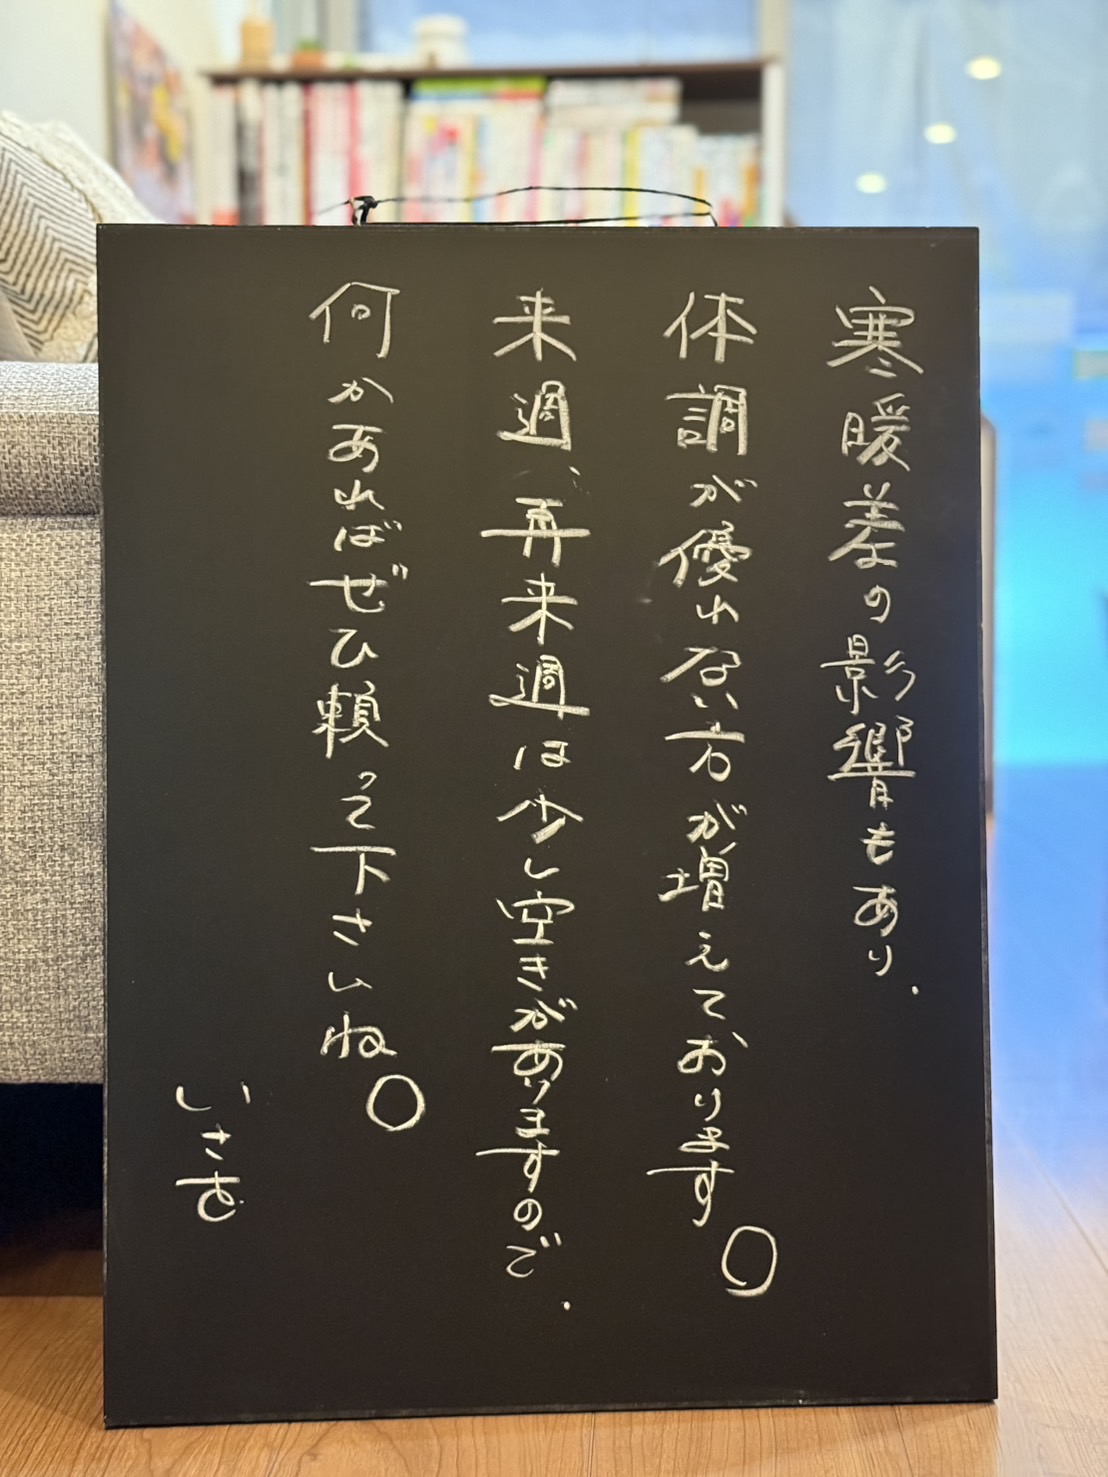 寒暖差の影響もあり、
体調が優れない方が増えております。
来週、再来週は少し空きがありますので、
何かあればぜひ頼って下さいね。
いさを